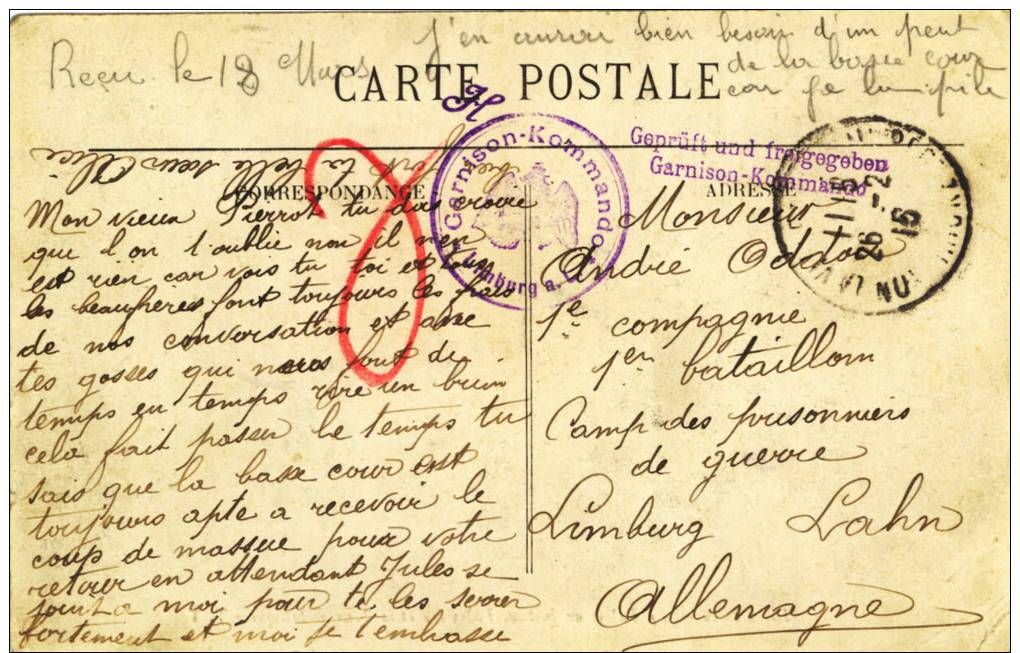 J'en aurai bien besoin d'un peut
de la basse cour
car je la pile
Reçu le 18 Mars
CARTE POSTALE
CORRESPONDANCE
ADRESSE
Garnison-Kommando
Limburg a. L.
Geprüft und freigegeben
Garnison-Kommando
11-12
26 2
16
Mon vieux Pierrot tu dois croire
que l'on t'oublie non il n'en
est rien car vois tu toi et tous
les beaufreres font toujours les frais
de nos conversation et avec
tes gosses qui nous font de
temps en temps rire un brin
cela fait passer le temps tu
sais que la basse cour est
toujours apte a recevoir le
coup de massue pour votre
retour en attendant Jules se
joint a moi pour te les serrer
fortement et moi je t'embrasse
fort ta belle soeur Alice
Monsieur
André Oddou
1e compagnie
1er bataillom
Camp des prisonniers
de guerre
Limburg Lahn
Allemagne